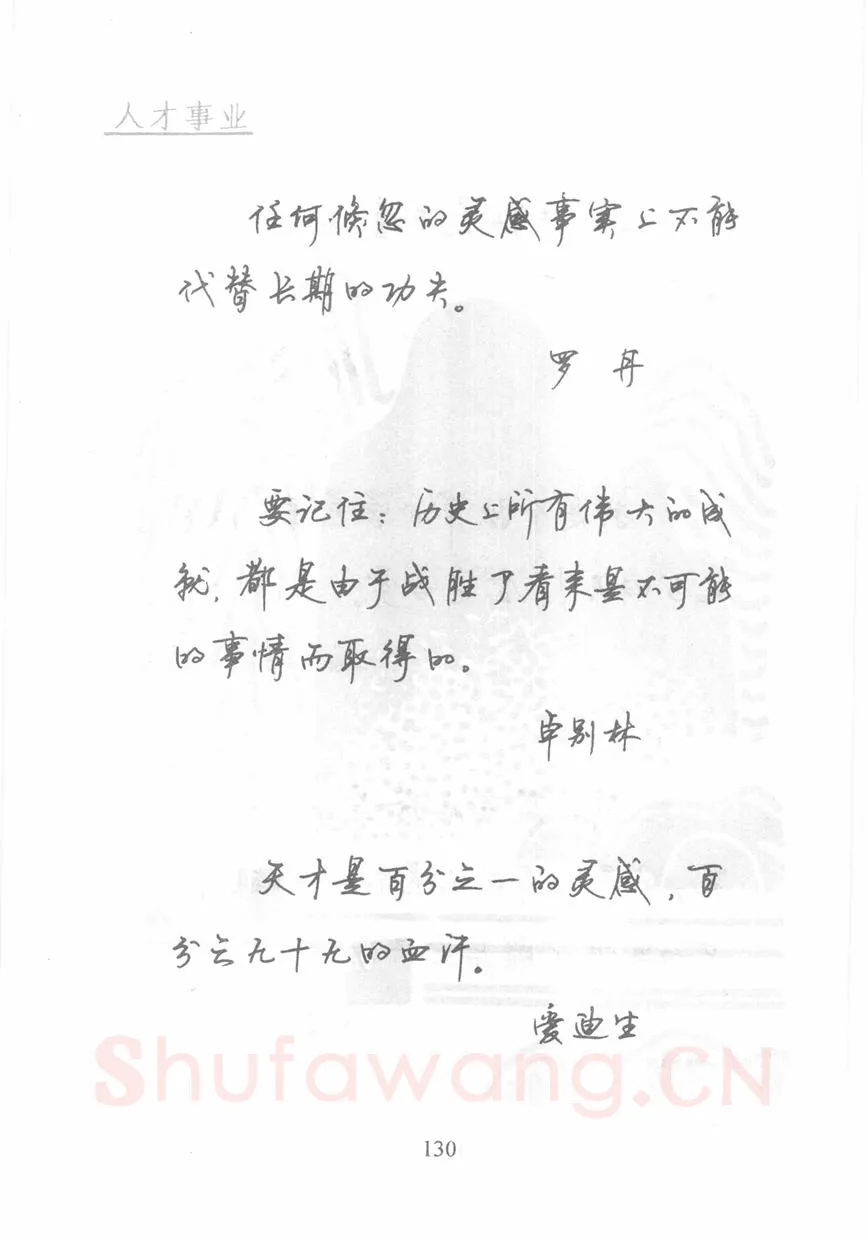 人才事业
任何倏忽的灵感事实上不能
代替长期的功夫。
罗 丹
要记住：历史上所有伟大的成
就，都是由于战胜了看来是不可能
的事情而取得的。
卓别林
天才是百分之一的灵感，百
分之九十九的血汗。
爱迪生
Shufawang.CN
130